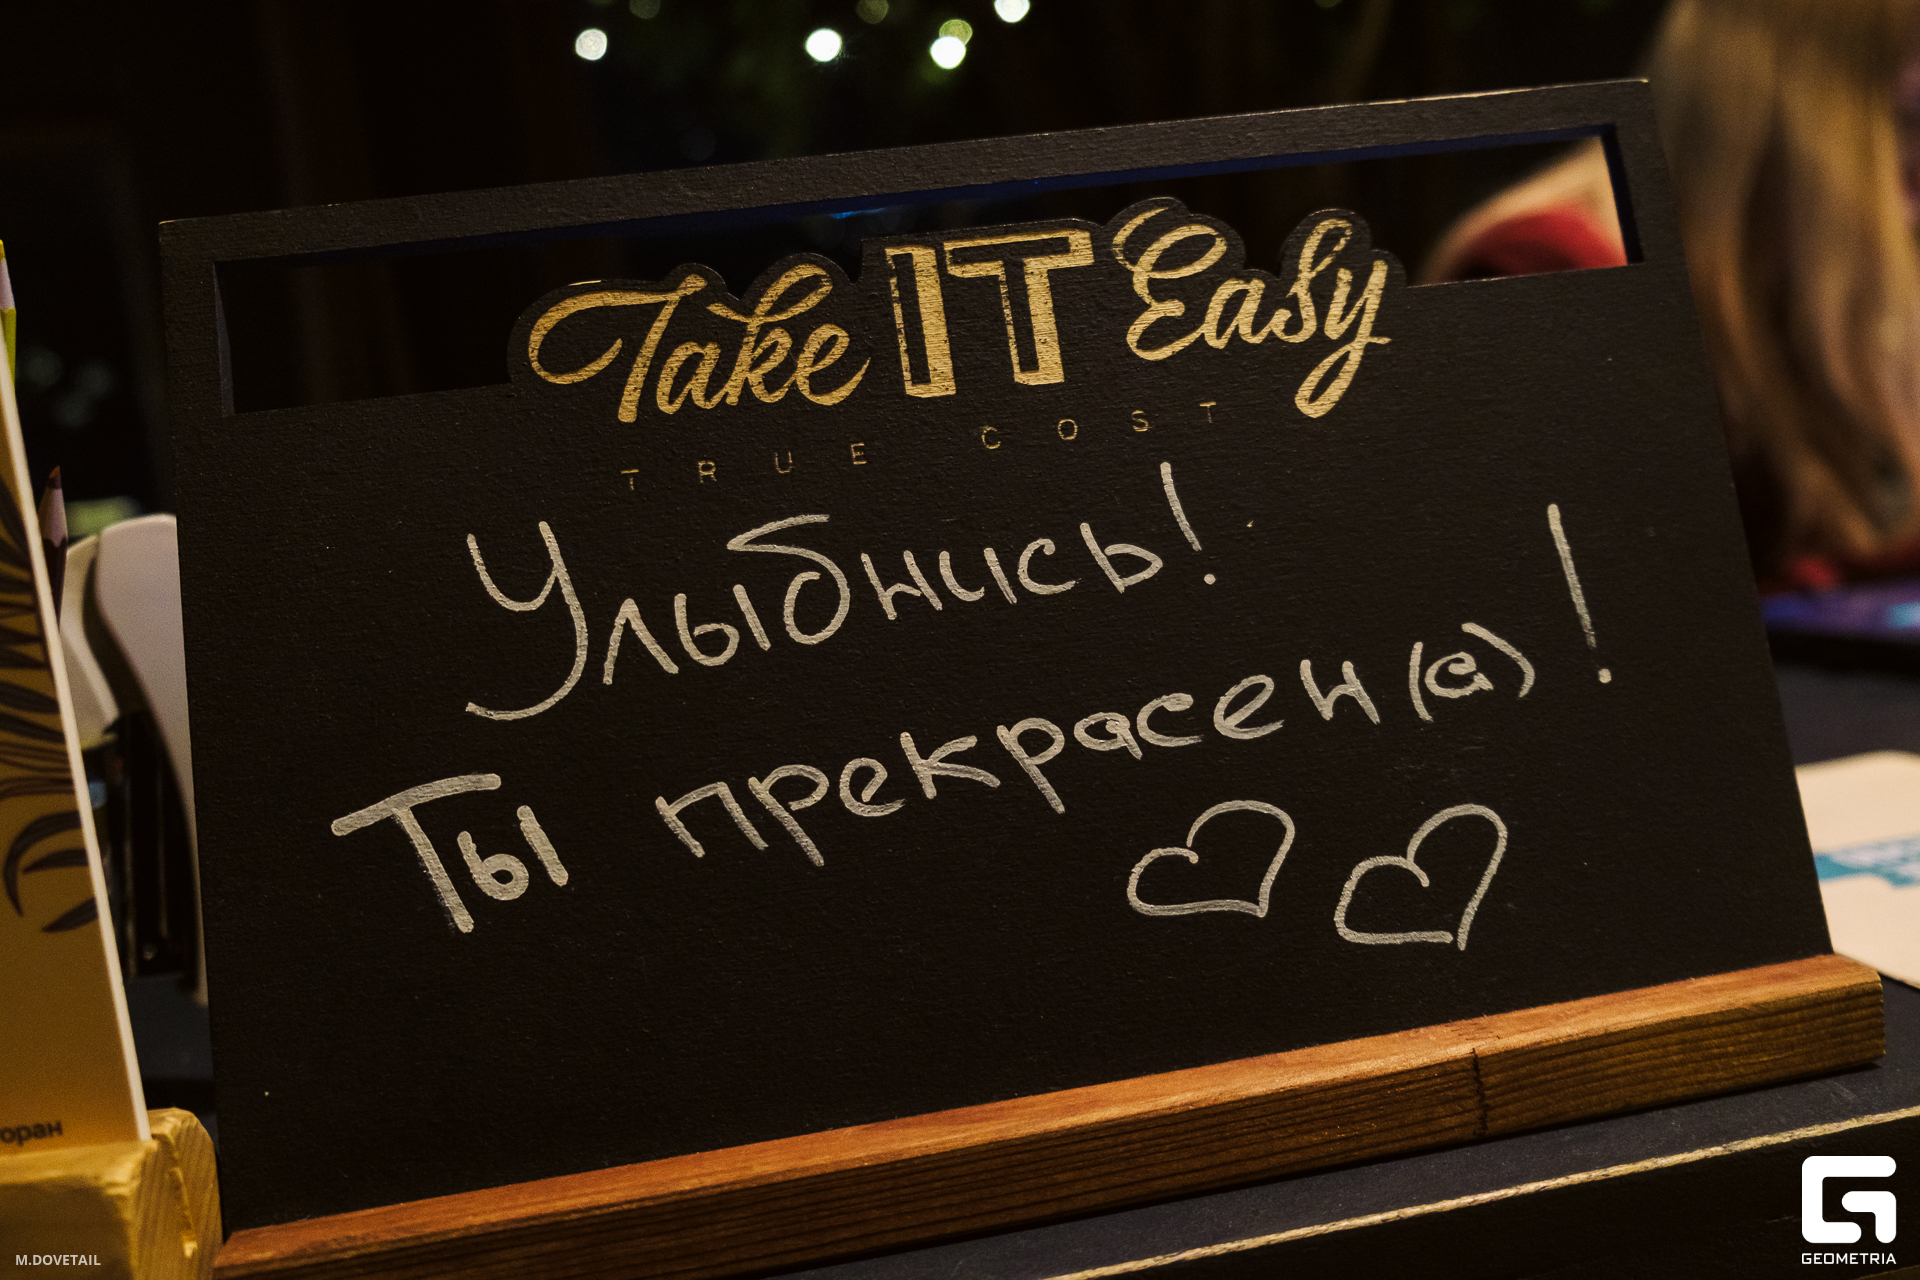 Take IT Easy
TRUE COST
Улыбнись!
Ты прекрасен(а)!
M.DOVETAIL
GEOMETRIA